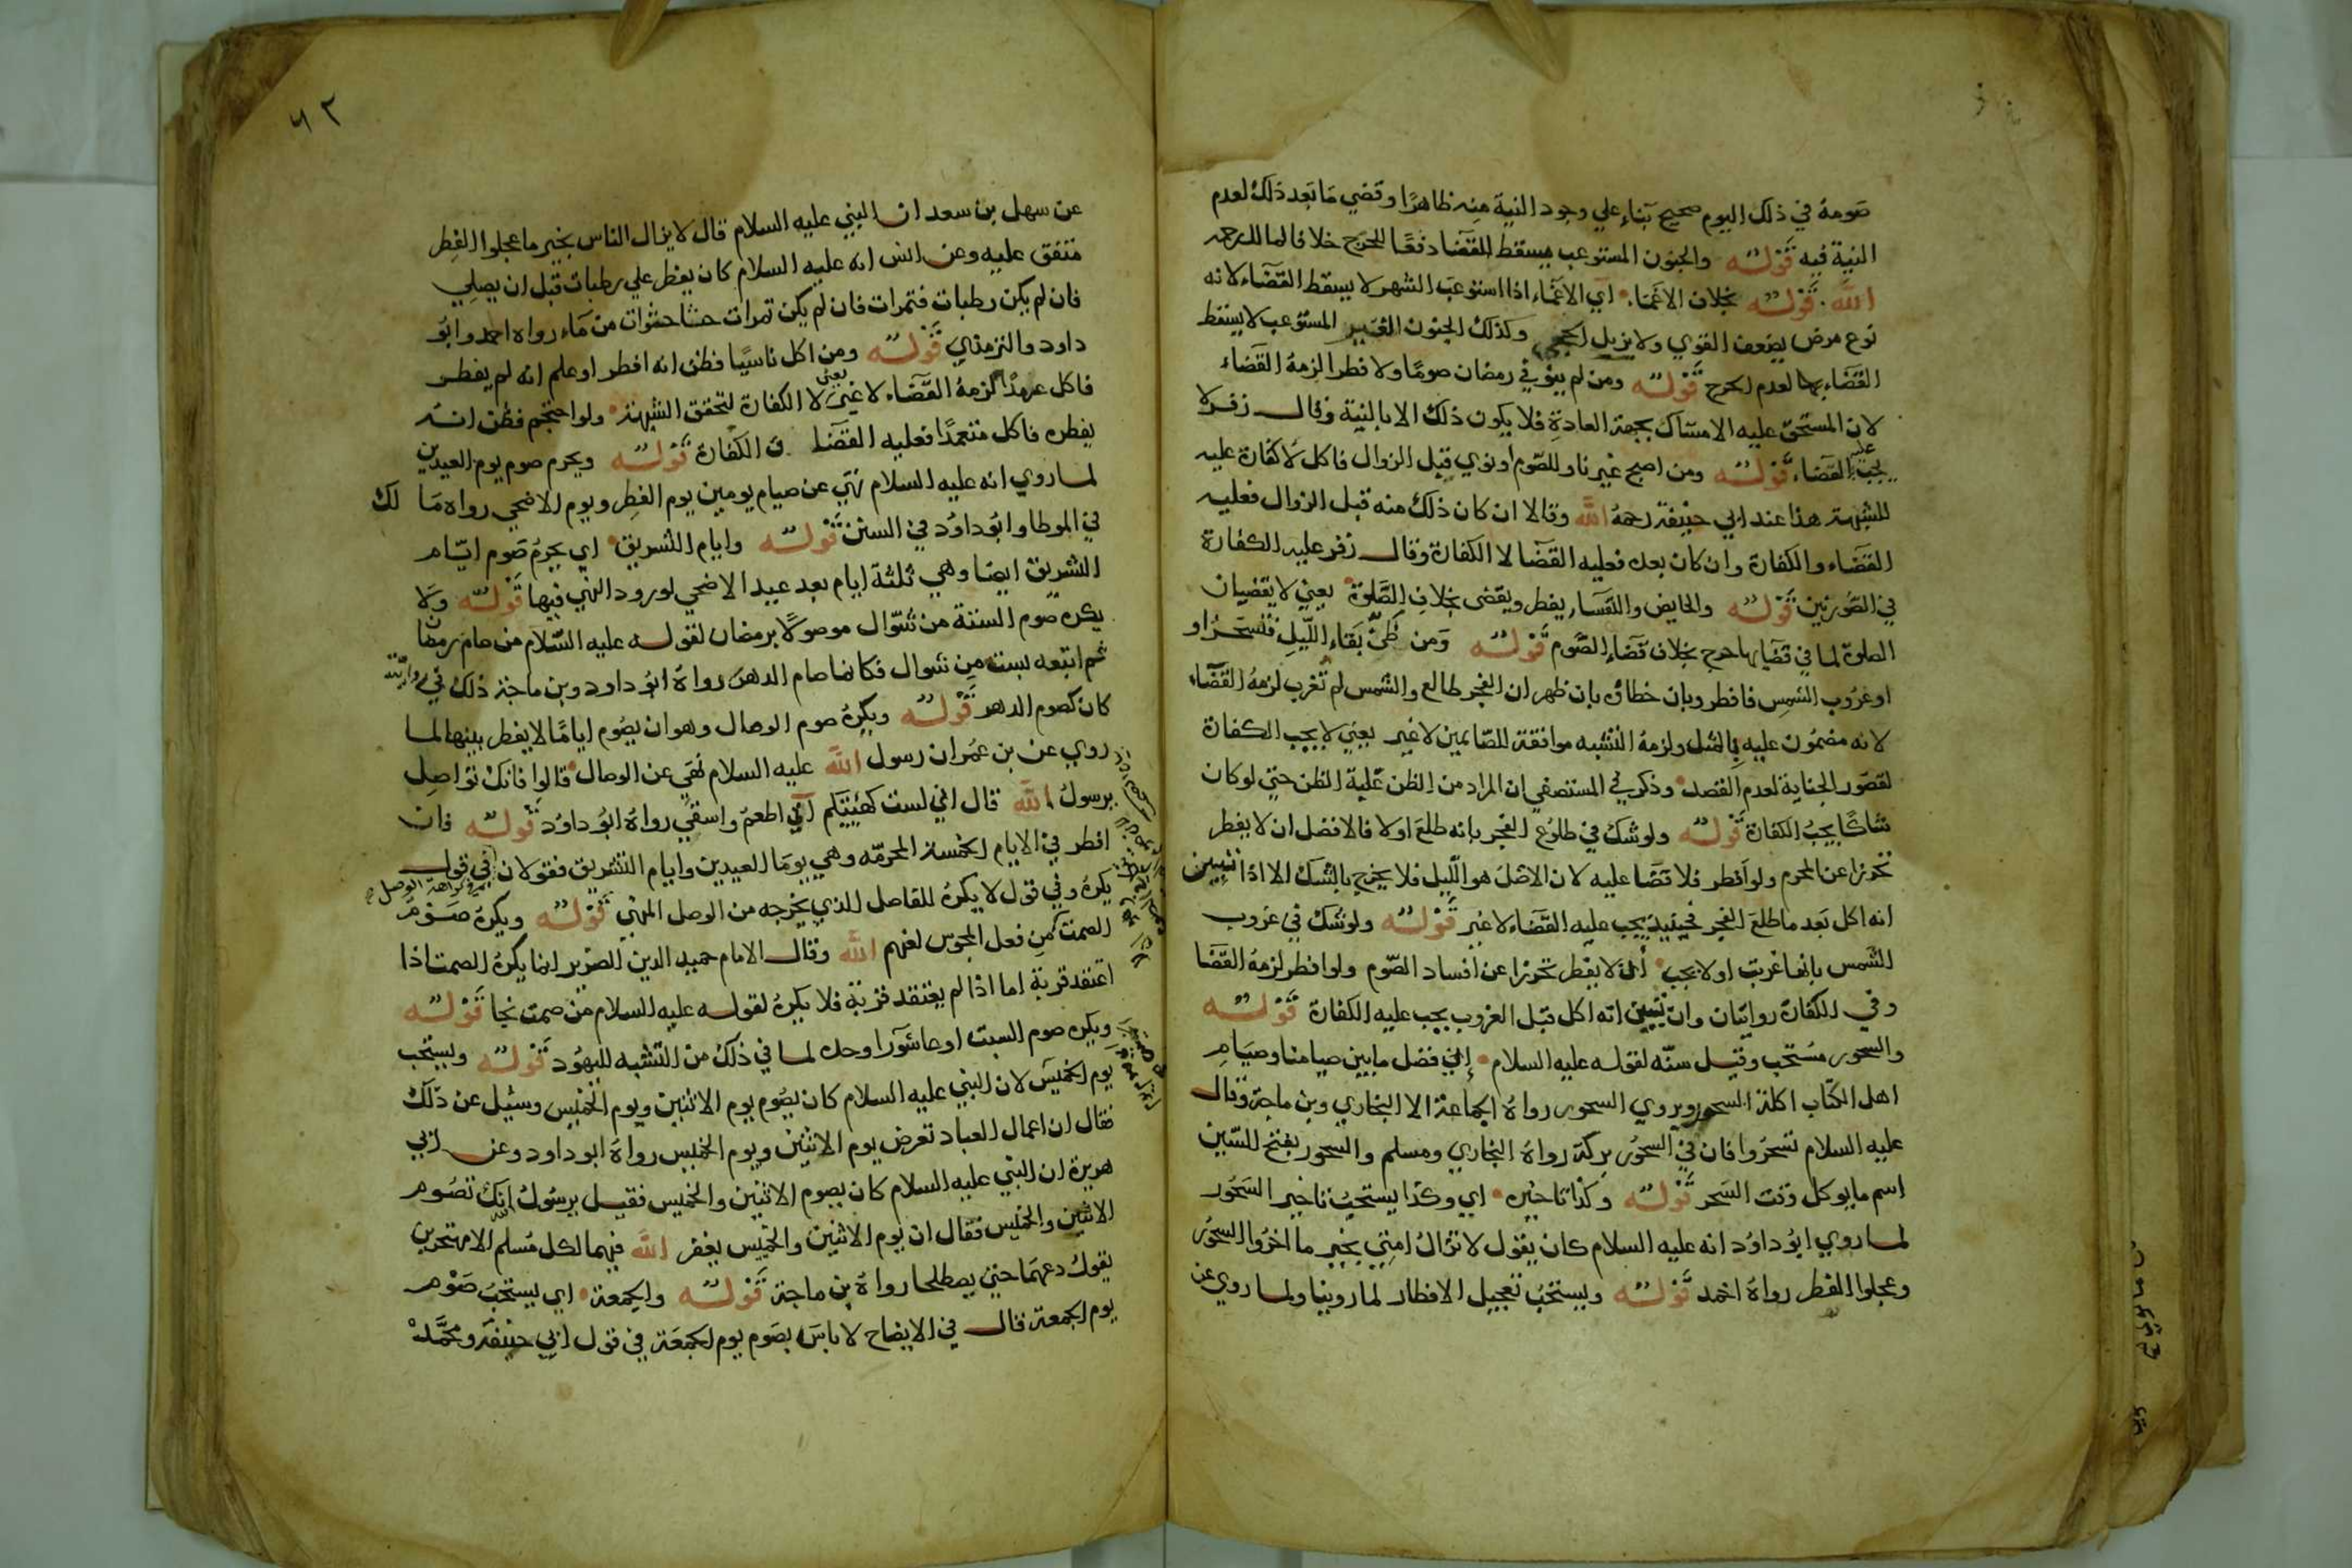 صومه في ذلك اليوم صحيح بناء علي وجود النية منه ظاهرا وقضي ما بعد ذلك لعدم
النية فيه قوله والجنون المستوعب يسقط القضا دفعا للحرج خلافا لمالك رحمه
الله . قوله بخلاف الاغما. اي الاغماء اذا استوعب الشهر لا يسقط القضاء لانه
نوع مرض يضعف القوي ولا يزيل الحجي وكذلك الجنون الغير المستوعب لا يسقط
القضاء بهما لعدم الحرج قوله ومن لم ينو في رمضان صوما ولا فطرا لزمه القضاء
لان المستحق عليه الامساك بجهة العادة فلا يكون ذلك الا بالنية وقال زفر لا
يجب عليه القضاء قوله ومن اصبح غير ناو للصوم او نوي قبل الزوال فاكل لا كفارة عليه
للشبهة هذا عند ابي حنيفة رحمه الله وقالا ان كان ذلك منه قبل الزوال فعليه
القضاء والكفارة وان كان بعده فعليه القضا لا الكفارة وقال زفر عليه الكفارة
في الصورتين قوله والحايض والنفساء يفطر ويقضي بخلاف الصلوة يعني لا يقضيان
الصلوة لما في قضايها حرج بخلاف قضاء الصوم قوله ومن ظن بقاء الليل فتسحر او
او غروب الشمس فافطر وبان خطاؤه بان ظهر ان الفجر طالع والشمس لم تغرب لزمه القضاء
لانه مضمون عليه بالمثل ولزمه التشبه موافقة للصايمين لا غير يعني لا يجب الكفارة
لقصور الجناية لعدم القصد وذكر في المستصفي ان المراد من الظن غلبة الظن حتي لو كان
شاكا يجب الكفارة قوله ولو شك في طلوع الفجر بانه طلع او لا فالافضل ان لا يفطر
تحرزا عن المحرم ولو افطر فلا قضا عليه لان الاصل هو الليل فلا يخرج بالشك الا اذا تبين
انه اكل بعد ما طلع الفجر فحينيذ يجب عليه القضاء لا غير قوله ولو شك في غروب
الشمس بانها غربت او لا يجب ان لا يفطر تحرزا عن افساد الصوم ولو افطر لزمه القضا
وفي الكفارة روايتان وان تبين انه اكل قبل الغروب يجب عليه الكفارة قوله
والسحور مستحب وقيل سنة لقوله عليه السلام ان فضل ما بين صيامنا وصيام
اهل الكتاب اكلة السحور ويروي السحور رواه الجماعة الا البخاري وبن ماجة وقال
عليه السلام تسحروا فان في السحور بركة رواه البخاري ومسلم والسحور بفتح السين
اسم ما يوكل وقت السحر قوله وكذا تاخيره اي وكذا يستحب تاخير السحور
لما روي ابو داود انه عليه السلام كان يقول لا تزال امتي بخير ما اخروا السحور
وعجلوا الفطر رواه احمد قوله ويستحب تعجيل الافطار لما روينا ولما روي عن
٦٢
عن سهل بن سعد ان النبي عليه السلام قال لا يزال الناس بخير ما عجلوا الفطر
متفق عليه وعن انس انه عليه السلام كان يفطر علي رطبات قبل ان يصلي
فان لم يكن رطبات فتمرات فان لم يكن تمرات حثا حثوات من ماء رواه احمد وابو
داود والترمذي قوله ومن اكل ناسيا فظن انه افطر او علم انه لم يفطر
فاكل عمدا لزمه القضاء لا غير يعني لا الكفارة لتحقق الشبهة ولو احتجم فظن انه
يفطره فاكل متعمدا فعليه القضا الكفارة قوله ويحرم صوم يوم العيدين
لما روي انه عليه السلام نهي عن صيام يومين يوم الفطر ويوم الاضحي رواه ما لك
في الموطا وابو داود في السنن قوله وايام التشريق اي يحرم صوم ايام
التشريق ايضا وهي ثلثة ايام بعد عيد الاضحي لورود النهي فيها قوله ولا
يكره صوم الستة من شوال موصولا برمضان لقوله عليه السلام من صام رمضان
ثم اتبعه بست من شوال فكانما صام الدهر رواه ابو داود وبن ماجة ذلك في رواية
كان كصوم الدهر قوله ويكره صوم الوصال وهو ان يصوم اياما لا يفطر بينها لما
روي عن بن عمر ان رسول الله عليه السلام نهي عن الوصال قالوا فانك تواصل
يرسول الله قال اني لست كهيئتكم اني اطعم واسقي رواه ابو داود قوله فان
افطر في الايام الخمسة المحرمة وهي يوما العيدين وايام التشريق فقولان في قول
يكره وفي قول لا يكره للفاصل الذي يخرجه من الوصل المنهي قوله ويكره صوم
الصمت كمن فعل المجوس لعنهم الله وقال الامام حميد الدين الضرير انما يكره الصمت اذا
اعتقد قربة اما اذا لم يعتقد قربة فلا يكره لقوله عليه السلام من صمت نجا قوله
ويكره صوم السبت او عاشورا وحده لما في ذلك من التشبه لليهود قوله ويستحب
يوم الخميس لان النبي عليه السلام كان يصوم يوم الاثنين ويوم الخميس وسئل عن ذلك
فقال ان اعمال العباد تعرض يوم الاثنين ويوم الخميس رواه ابو داود وعن ابي
هريرة ان النبي عليه السلام كان يصوم الاثنين والخميس فقيل يرسول الله انك تصوم
الاثنين والخميس فقال ان يوم الاثنين والخميس يغفر الله فيهما لكل مسلم الا مهتجرين
يقول دعهما حتي يصطلحا رواه بن ماجة قوله والجمعة اي يستحب صوم
يوم الجمعة قال في الايضاح لا باس بصوم يوم الجمعة في قول ابي حنيفة ومحمد